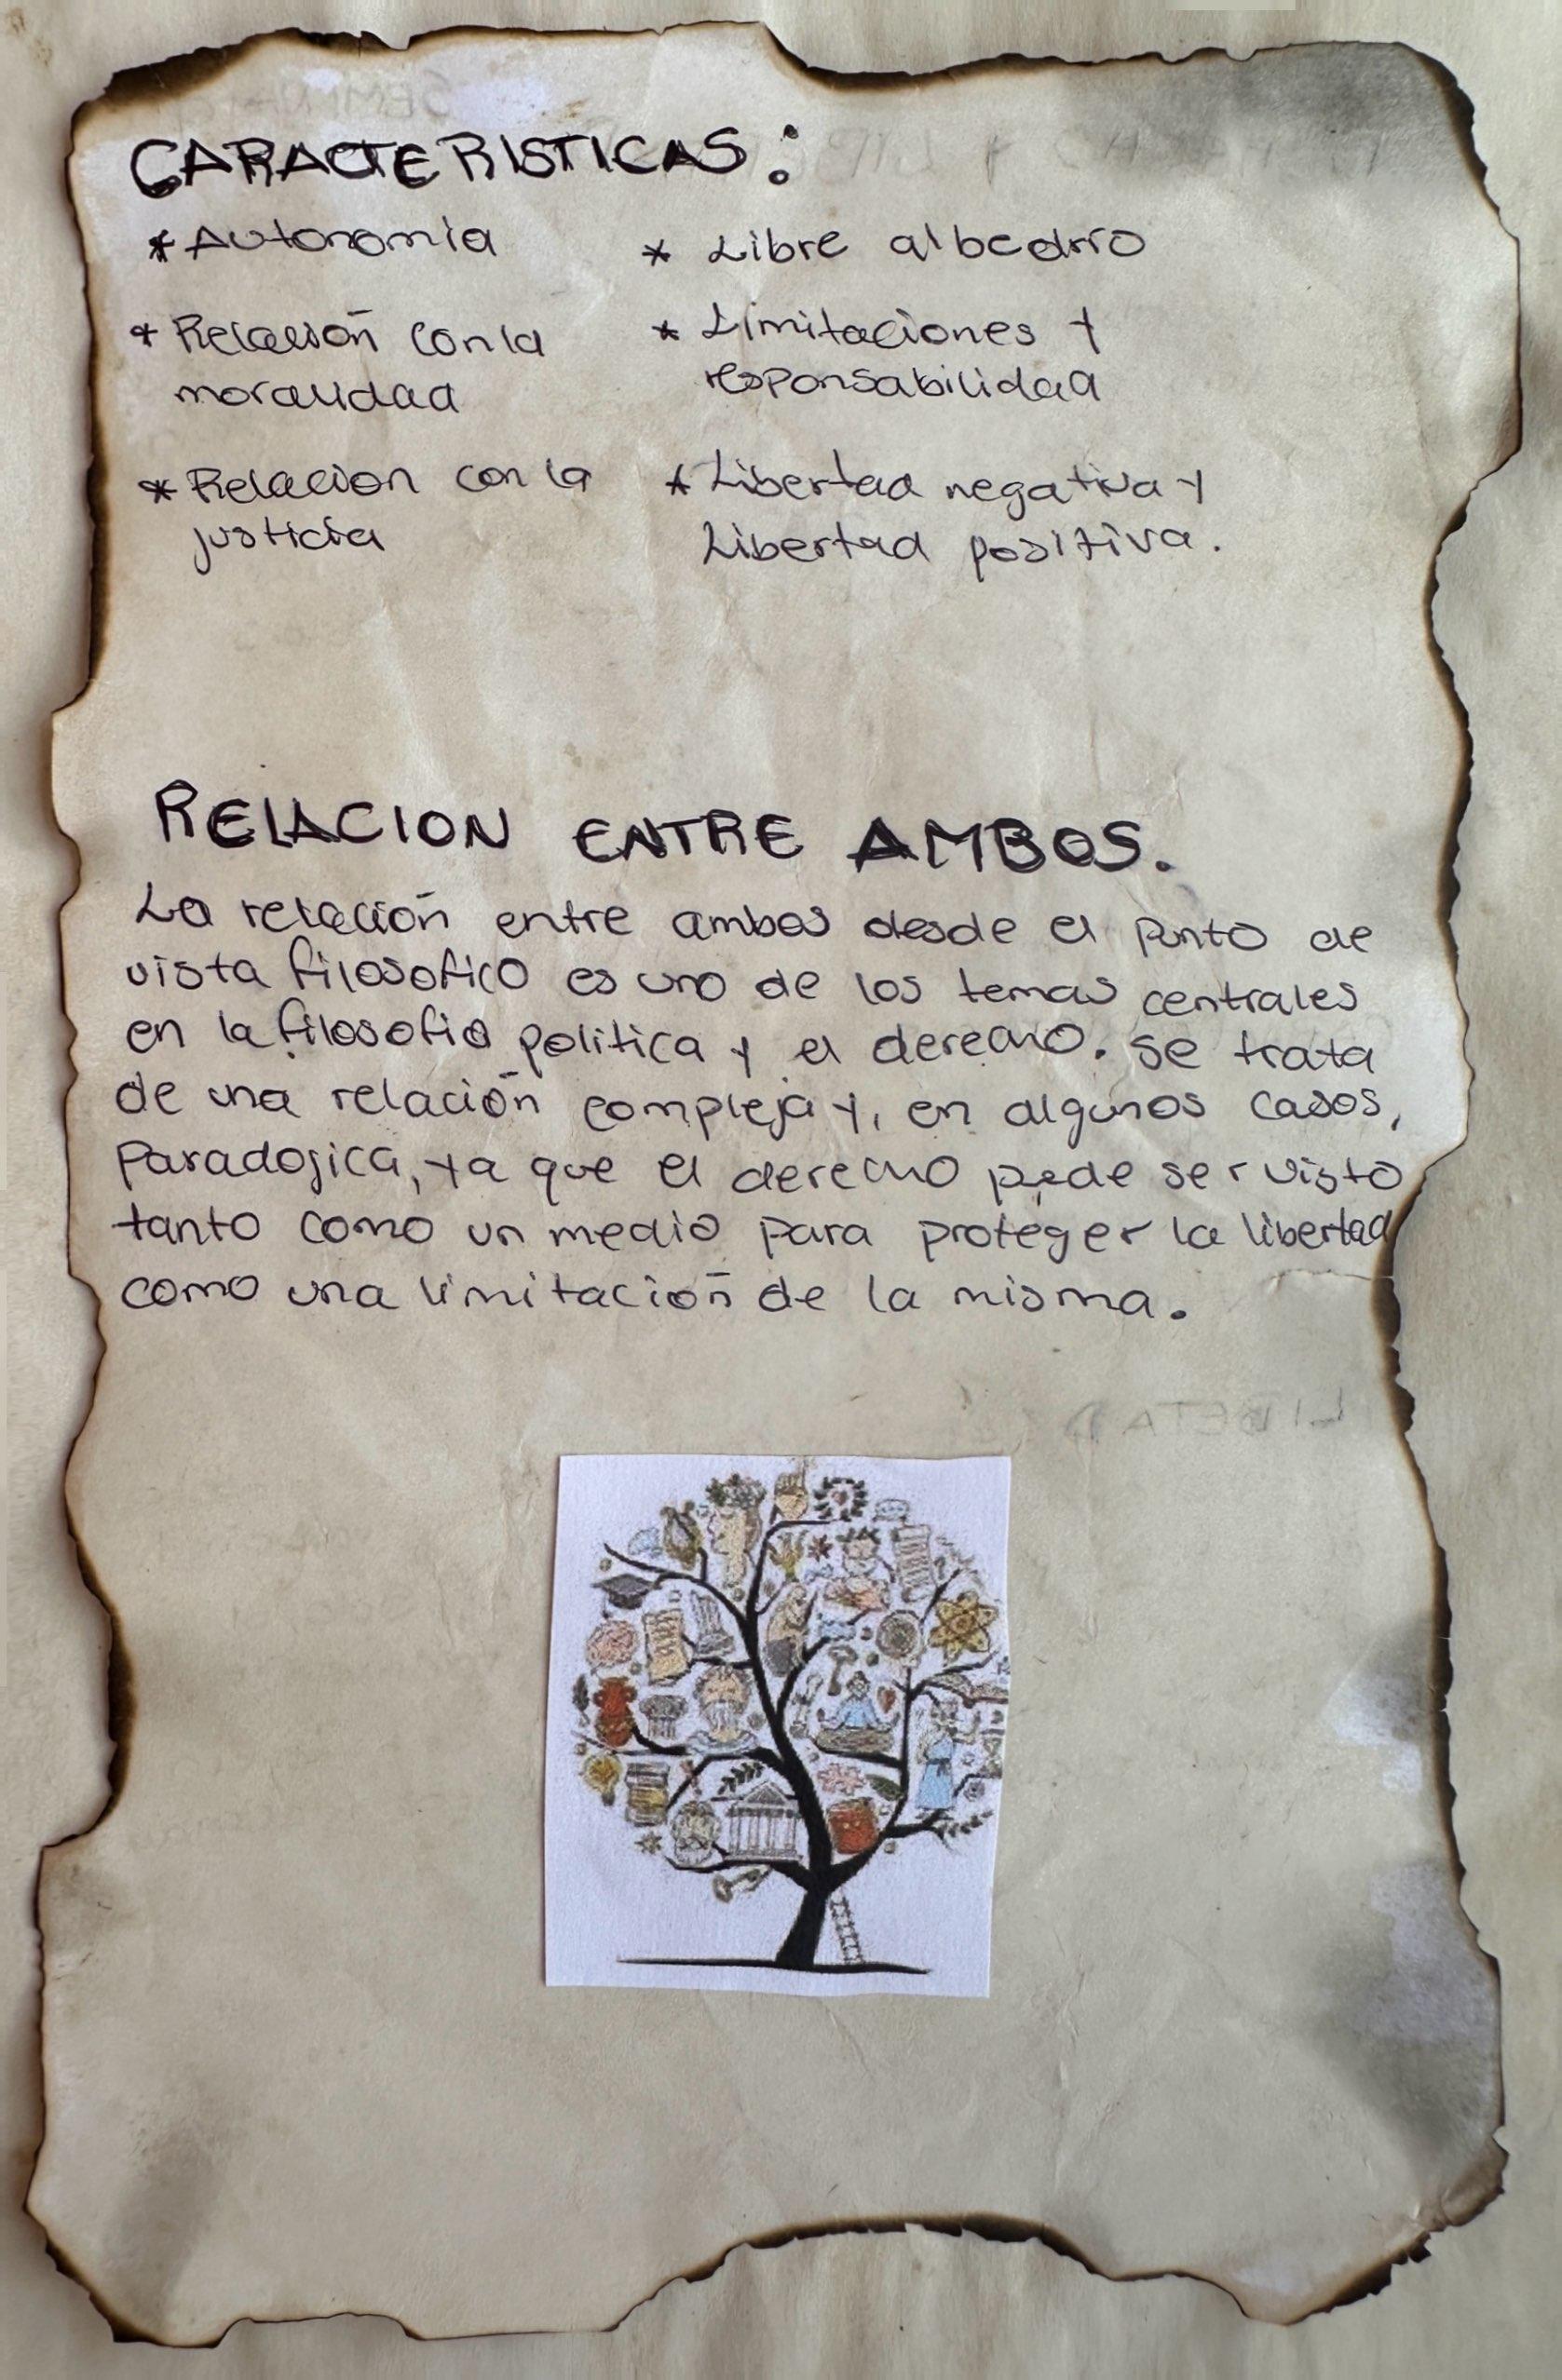 CARACTERISTICAS:
* Autonomia
* Libre albedrío
* Relación con la
moralidad
* Limitaciones y
responsabilidad
* Relacion con la
justicia
* Libertad negativa y
Libertad positiva.
RELACION ENTRE AMBOS.
La relación entre ambos desde el punto de
vista filosofico es uno de los temas centrales
en la filosofia politica y el derecho. se trata
de una relación compleja y, en algunos casos,
Paradojica, ya que el derecho puede ser visto
tanto como un medio para proteger la libertad
como una limitación de la misma.
LIBETAD